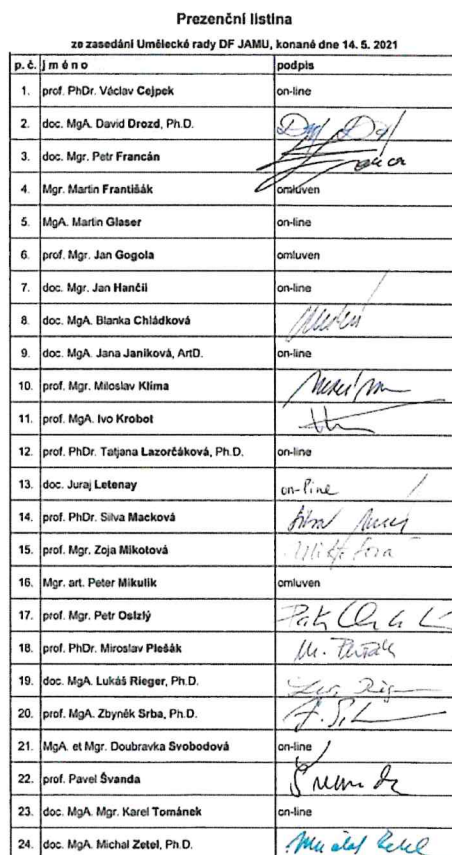 Prezenční listina
ze zasedání Umělecké rady DF JAMU, konané dne 14. 5. 2021
p. č. j m é n o podpis
1. prof. PhDr. Václav Cejpek on-line
2. doc. MgA. David Drozd, Ph.D.
3. doc. Mgr. Petr Francán
4. Mgr. Martin Františák omluven
5. MgA. Martin Glaser on-line
6. prof. Mgr. Jan Gogola omluven
7. doc. Mgr. Jan Hančil on-line
8. doc. MgA. Blanka Chládková
9. doc. MgA. Jana Janíková, ArtD. on-line
10. prof. Mgr. Miloslav Klíma
11. prof. MgA. Ivo Krobot
12. prof. PhDr. Tatjana Lazorčáková, Ph.D. on-line
13. doc. Juraj Letenay on-line
14. prof. PhDr. Silva Macková
15. prof. Mgr. Zoja Mikotová
16. Mgr. art. Peter Mikulík omluven
17. prof. Mgr. Petr Oslzlý
18. prof. PhDr. Miroslav Plešák
19. doc. MgA. Lukáš Rieger, Ph.D.
20. prof. MgA. Zbyněk Srba, Ph.D.
21. MgA. et Mgr. Doubravka Svobodová on-line
22. prof. Pavel Švanda
23. doc. MgA. Mgr. Karel Tománek on-line
24. doc. MgA. Michal Zetel, Ph.D.